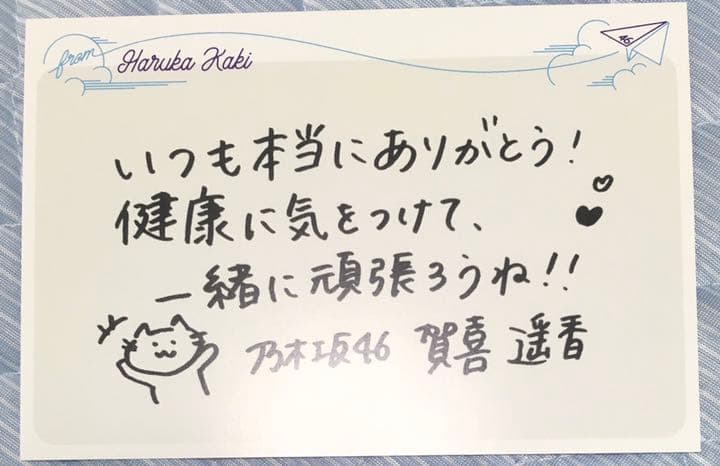 from Haruka Kaki
いつも本当にありがとう!
健康に気をつけて、
一緒に頑張ろうね!!
乃木坂46 賀喜 遥香